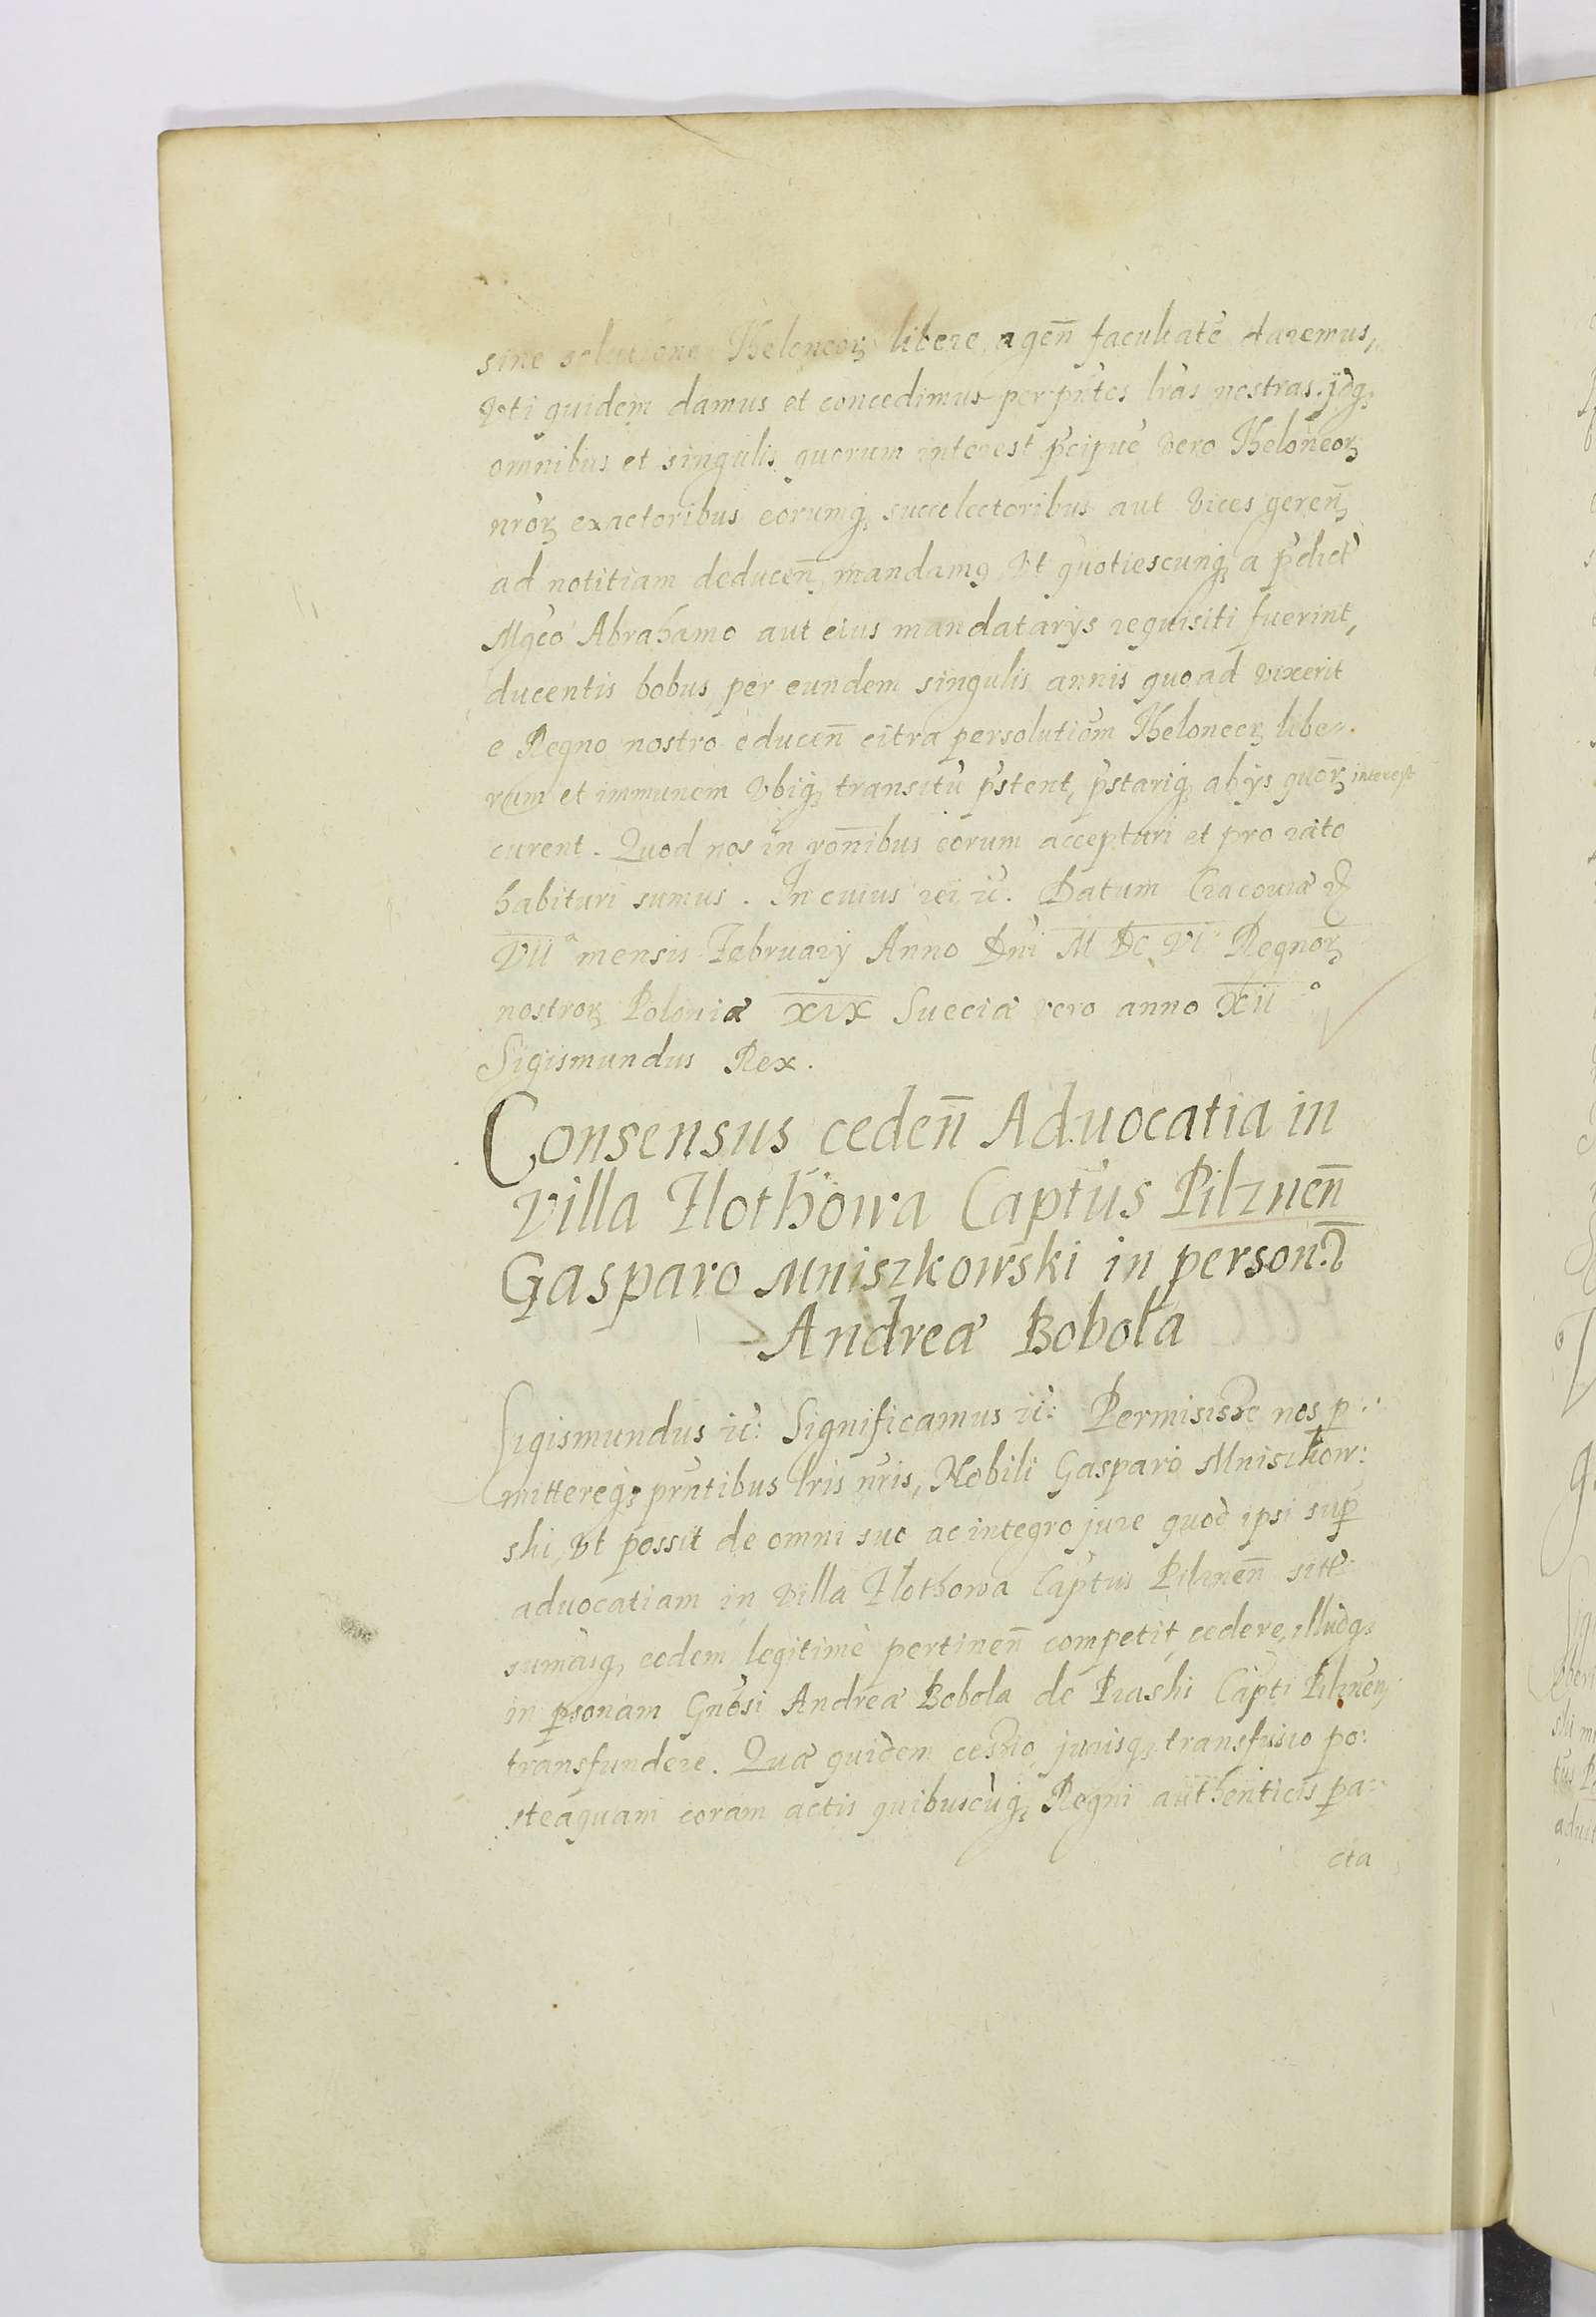 sine solutione Theloneoꝝ libere agen̄ facultatē daremus,
Vti quidem damus et concedimus per pn̄tes lr̃as nostras. jdq̨
omnibus et singulis quorum interest p̃cipuè vero Theloneoꝝ
nr̃oꝝ exactoribus eorumq̨ succolectoribus aut vices geren̄
ad notitiam deducen̄ mandamꝰ, Vt quotiescunq̨ a p̃dicto
Mgco Abrahamo aut eius mandatarijs requisiti fuerint,
ducentis bobus per eundem singulis annis quoad vixerit
e Regno nostro educen̄ citra persolutiõm Theloneoꝝ libe-
rum et immunem Vbiq̨ transitū p̃stent, p̃stariq̨ ab ijs quoꝝ interest
curent. Quod nos in ron̄ibus eorum accepturi et pro rato
habituri sumus. In cuius rei ic̃. Datum Cracouiæ
VIIa mensis February Anno Dn̄i M DC VI Regnoꝝ
nostroꝝ Poloniæ XIX Sueciæ vero anno XIIo
Sigismundus Rex.
Consensus ceden̄ Aduocatia in
villa Flothowa Captūs Pilznen̄
Gasparo Mniszkowski in person:
Andreæ Bobola
Sigismundus ic̃: Significamus ic̃: Permisisse nos p-
mittereq̨ prñtibus lr̃is nr̃is, Nobili Gasparo Mniszkow:
ski, Vt possit de omni suo ac integro jure quod ipsi sup̄
advocatiam in villa Flothowa Captūs Pilznen̄ sitt
eodem legitimè pertinen̄ competit, cedere, illudq̨
in ꝑsonam Gn̄osi Andreæ Bobola de Piaski Capti Pilznen̄
transfundere. Quæ quidem cessio jurisq̨ transfusio po:
steaquam coram actis quibuscūq̨ Regni authenticis pa-
cta